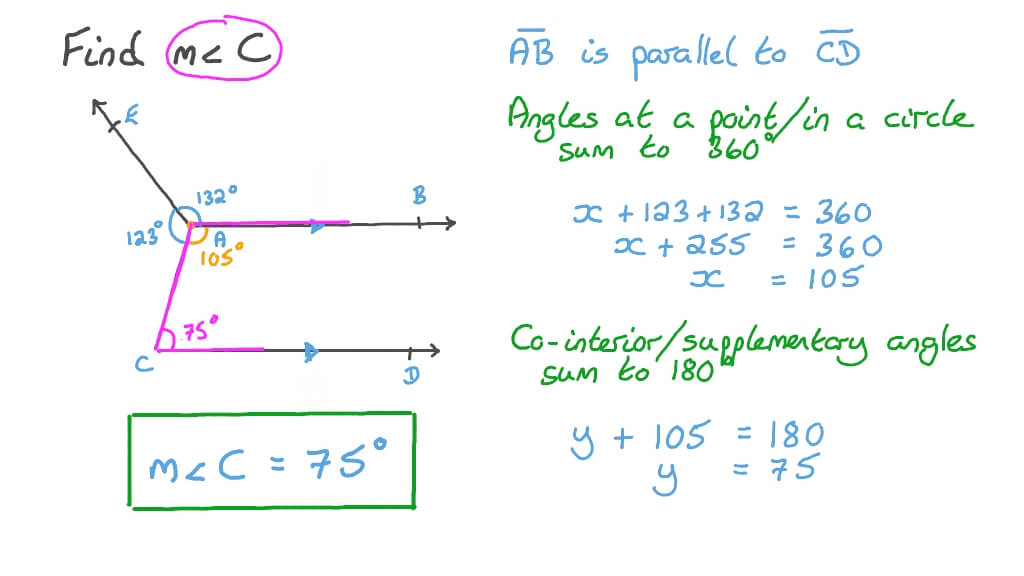 Find m< C
E
132°
B
123°
A
105°
75°
C
D
m< C = 75°
A̅B̅ is parallel to C̅D̅
Angles at a point/in a circle
sum to 360°
x + 123 + 132 = 360
x + 255 = 360
x = 105
Co-interior/supplementary angles
sum to 180°
y + 105 = 180
y = 75